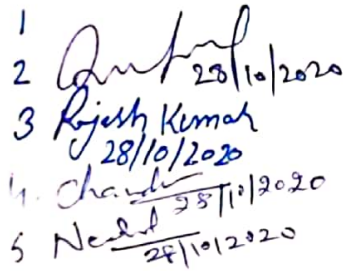 1
2 28/10/2020
3 Rajesh Kumar
28/10/2020
4. 28/10/2020
5 28/10/2020